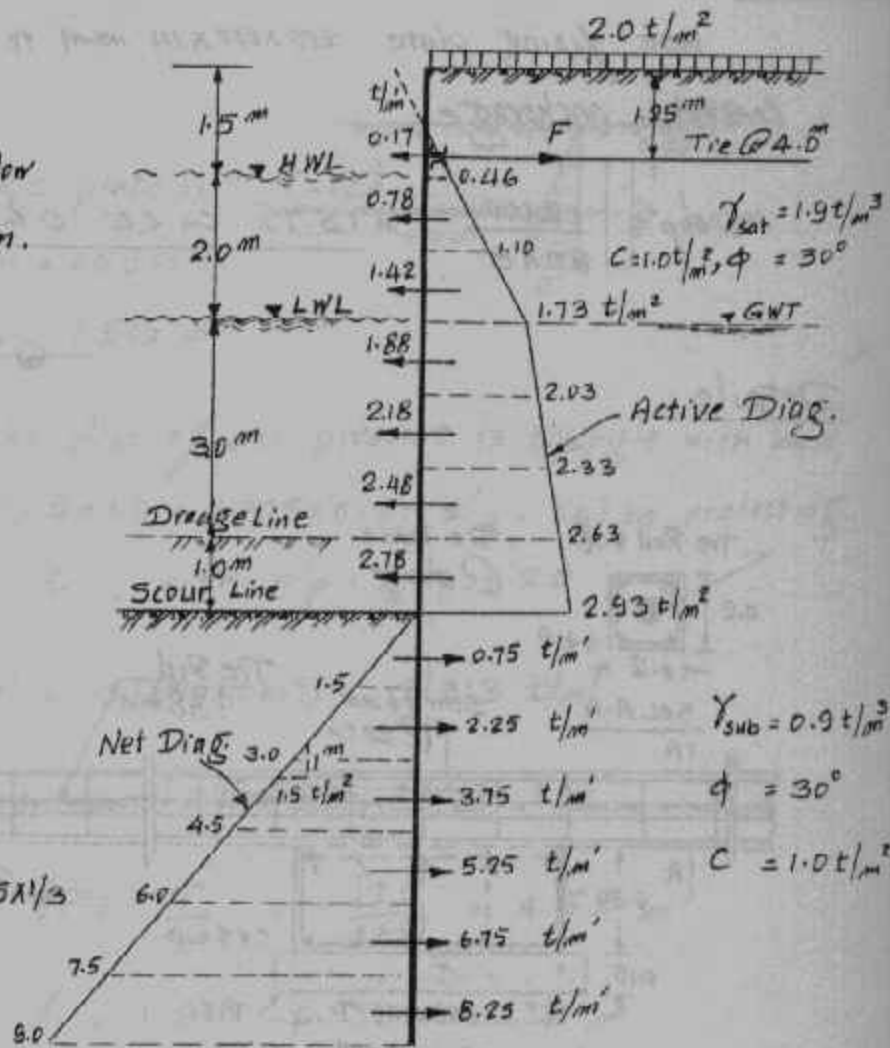 2.0 t/m²
1.5 m
t/m'
1.25 m
0.17
F
Tie @ 4.0 m
HWL
0.46
0.78
γsat = 1.9 t/m³
2.0 m
1.10
C=1.0 t/m², φ = 30°
1.42
LWL
1.73 t/m²
GWT
1.88
2.03
Active Diag.
3.0 m
2.18
2.33
2.48
Dredge Line
2.63
1.0 m
2.78
Scour Line
2.93 t/m²
0.75 t/m'
1.5
2.25 t/m'
γsub = 0.9 t/m³
Net Diag.
3.0
1 m
1.5 t/m²
3.75 t/m'
φ = 30°
4.5
5.25 t/m'
C = 1.0 t/m²
5x1/3
6.0
6.75 t/m'
7.5
8.25 t/m'
9.0